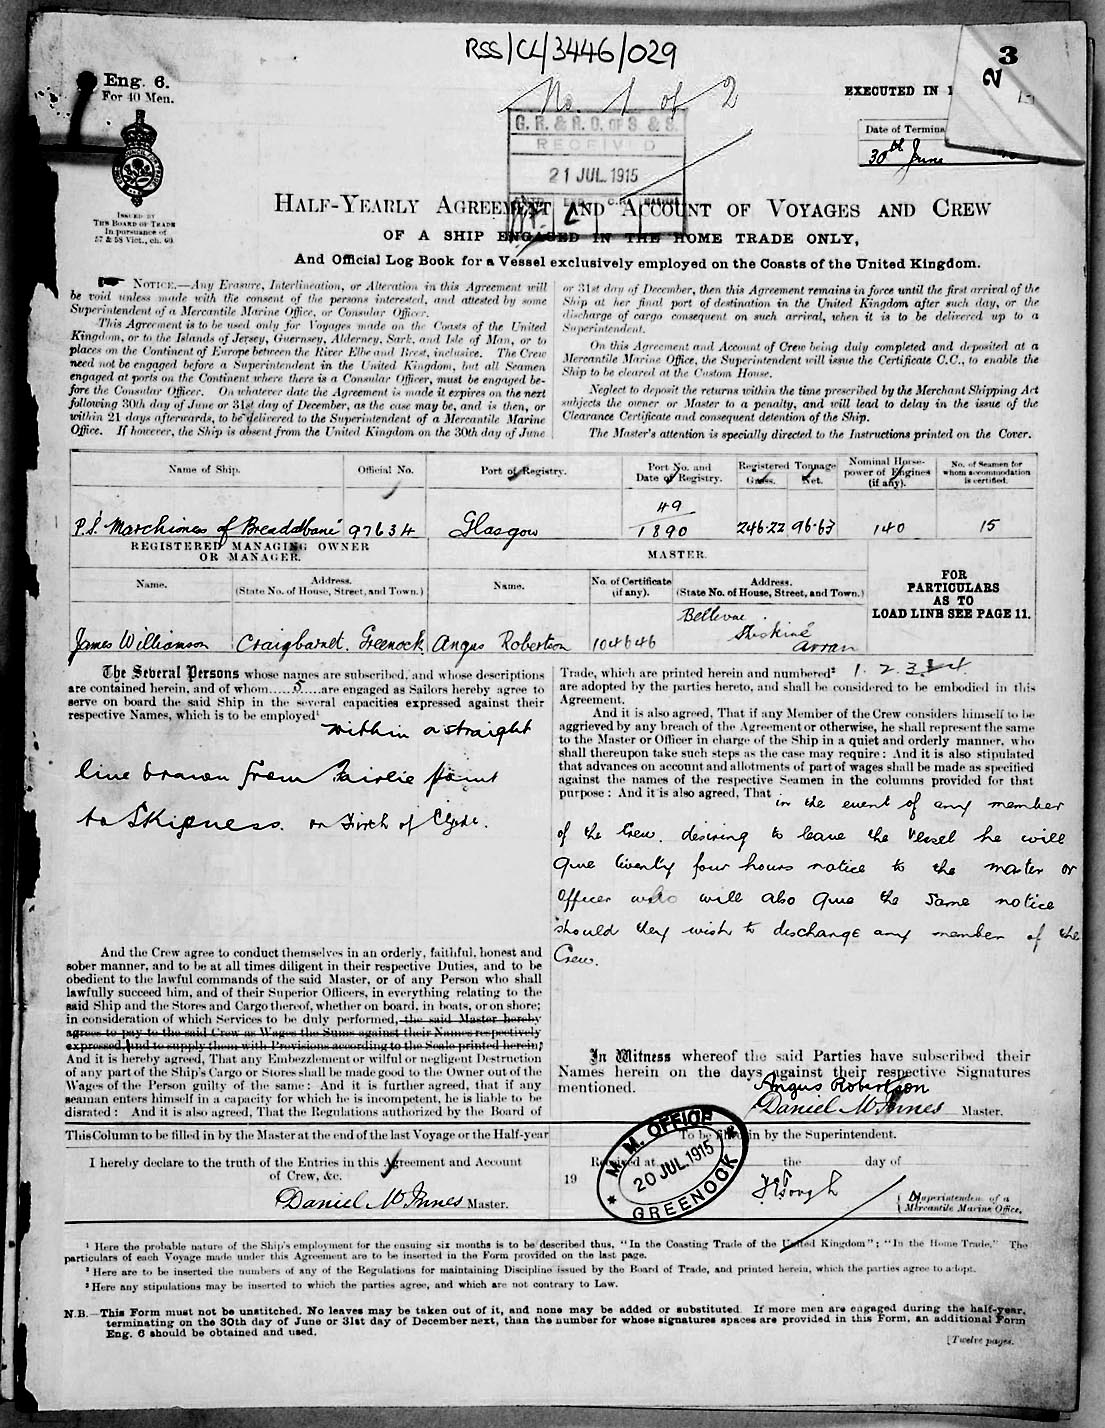 RSS/CL/3446/029
3
2
Eng. 6.
For 40 Men.
No. 1 of 2
EXECUTED IN 1
G. R. & R. O. OF S. & S.
RECEIVED
21 JUL. 1915
Date of Termina
30th June
ISSUED BY
THE BOARD OF TRADE
In pursuance of
57 & 58 Vict., ch. 60.
HALF-YEARLY AGREEMENT AND ACCOUNT OF VOYAGES AND CREW
OF A SHIP ENGAGED IN THE HOME TRADE ONLY,
And Official Log Book for a Vessel exclusively employed on the Coasts of the United Kingdom.
NOTICE.—Any Erasure, Interlineation, or Alteration in this Agreement will
be void unless made with the consent of the persons interested, and attested by some
Superintendent of a Mercantile Marine Office, or Consular Officer.
This Agreement is to be used only for Voyages made on the Coasts of the United
Kingdom, or to the Islands of Jersey, Guernsey, Alderney, Sark, and Isle of Man, or to
places on the Continent of Europe between the River Elbe and Brest, inclusive. The Crew
need not be engaged before a Superintendent in the United Kingdom, but all Seamen
engaged at ports on the Continent where there is a Consular Officer, must be engaged be-
fore the Consular Officer. On whatever date the Agreement is made it expires on the next
following 30th day of June or 31st day of December, as the case may be, and is then, or
within 21 days afterwards, to be delivered to the Superintendent of a Mercantile Marine
Office. If however, the Ship is absent from the United Kingdom on the 30th day of June
or 31st day of December, then this Agreement remains in force until the first arrival of the
Ship at her final port of destination in the United Kingdom after such day, or the
discharge of cargo consequent on such arrival, when it is to be delivered up to a
Superintendent.
On this Agreement and Account of Crew being duly completed and deposited at a
Mercantile Marine Office, the Superintendent will issue the Certificate C.C., to enable the
Ship to be cleared at the Custom House.
Neglect to deposit the returns within the time prescribed by the Merchant Shipping Act
subjects the owner or Master to a penalty, and will lead to delay in the issue of the
Clearance Certificate and consequent detention of the Ship.
The Master's attention is specially directed to the Instructions printed on the Cover.
Name of Ship. Official No. Port of Registry. Port No. and Date of Registry. Registered Tonnage Gross. Net. Nominal Horse-power of Engines (if any). No. of Seamen for whom accommodation is certified.
P.S. Marchioness of Breadalbane 97634 Glasgow 49/1890 246.22 96.63 140 15
REGISTERED MANAGING OWNER
OR MANAGER.
MASTER.
FOR
PARTICULARS
AS TO
LOAD LINE SEE PAGE 11.
Name. Address. (State No. of House, Street, and Town.) Name. No. of Certificate (if any). Address. (State No. of House, Street, and Town.)
James Williamson Craigbarnet. Greenock Angus Robertson 104646 Bellevue Shiskine Arran
The Several Persons whose names are subscribed, and whose descriptions
are contained herein, and of whom 5 are engaged as Sailors hereby agree to
serve on board the said Ship in the several capacities expressed against their
respective Names, which is to be employed¹
within a straight
line drawn from Fairlie point
to Skipness. on Firth of Clyde.
And the Crew agree to conduct themselves in an orderly, faithful, honest and
sober manner, and to be at all times diligent in their respective Duties, and to be
obedient to the lawful commands of the said Master, or of any Person who shall
lawfully succeed him, and of their Superior Officers, in everything relating to the
said Ship and the Stores and Cargo thereof, whether on board, in boats, or on shore;
in consideration of which Services to be duly performed, the said Master hereby
agrees to pay to the said Crew as Wages the Sums against their Names respectively
expressed, and to supply them with Provisions according to the Scale printed herein;
And it is hereby agreed, That any Embezzlement or wilful or negligent Destruction
of any part of the Ship's Cargo or Stores shall be made good to the Owner out of the
Wages of the Person guilty of the same: And it is further agreed, that if any
seaman enters himself in a capacity for which he is incompetent, he is liable to be
disrated: And it is also agreed, That the Regulations authorized by the Board of
Trade, which are printed herein and numbered² 1. 2 3 4
are adopted by the parties hereto, and shall be considered to be embodied in this
Agreement.
And it is also agreed, That if any Member of the Crew considers himself to be
aggrieved by any breach of the Agreement or otherwise, he shall represent the same
to the Master or Officer in charge of the Ship in a quiet and orderly manner, who
shall thereupon take such steps as the case may require: And it is also stipulated
that advances on account and allotments of part of wages shall be made as specified
against the names of the respective Seamen in the columns provided for that
purpose: And it is also agreed, That in the event of any member
of the Crew. desiring to leave the Vessel he will
give twenty four hours notice to the master or
Officer who will also give the same notice
should they wish to discharge any member of the
Crew.
In Witness whereof the said Parties have subscribed their
Names herein on the days against their respective Signatures
mentioned.
Angus Robertson
Daniel McInnes Master.
This Column to be filled in by the Master at the end of the last Voyage or the Half-year
I hereby declare to the truth of the Entries in this Agreement and Account
of Crew, &c.
Daniel McInnes Master.
To be filled in by the Superintendent.
Received at the day of
19
M. M. OFFICE
20 JUL. 1915
GREENOCK
Superintendent of a
Mercantile Marine Office.
¹ Here the probable nature of the Ship's employment for the ensuing six months is to be described thus, "In the Coasting Trade of the United Kingdom"; "In the Home Trade." The
particulars of each Voyage made under this Agreement are to be inserted in the Form provided on the last page.
² Here are to be inserted the numbers of any of the Regulations for maintaining Discipline issued by the Board of Trade, and printed herein, which the parties agree to adopt.
³ Here any stipulations may be inserted to which the parties agree, and which are not contrary to Law.
N.B.—This Form must not be unstitched. No leaves may be taken out of it, and none may be added or substituted. If more men are engaged during the half-year,
terminating on the 30th day of June or 31st day of December next, than the number for whose signatures spaces are provided in this Form, an additional Form
Eng. 6 should be obtained and used.
[Twelve pages.